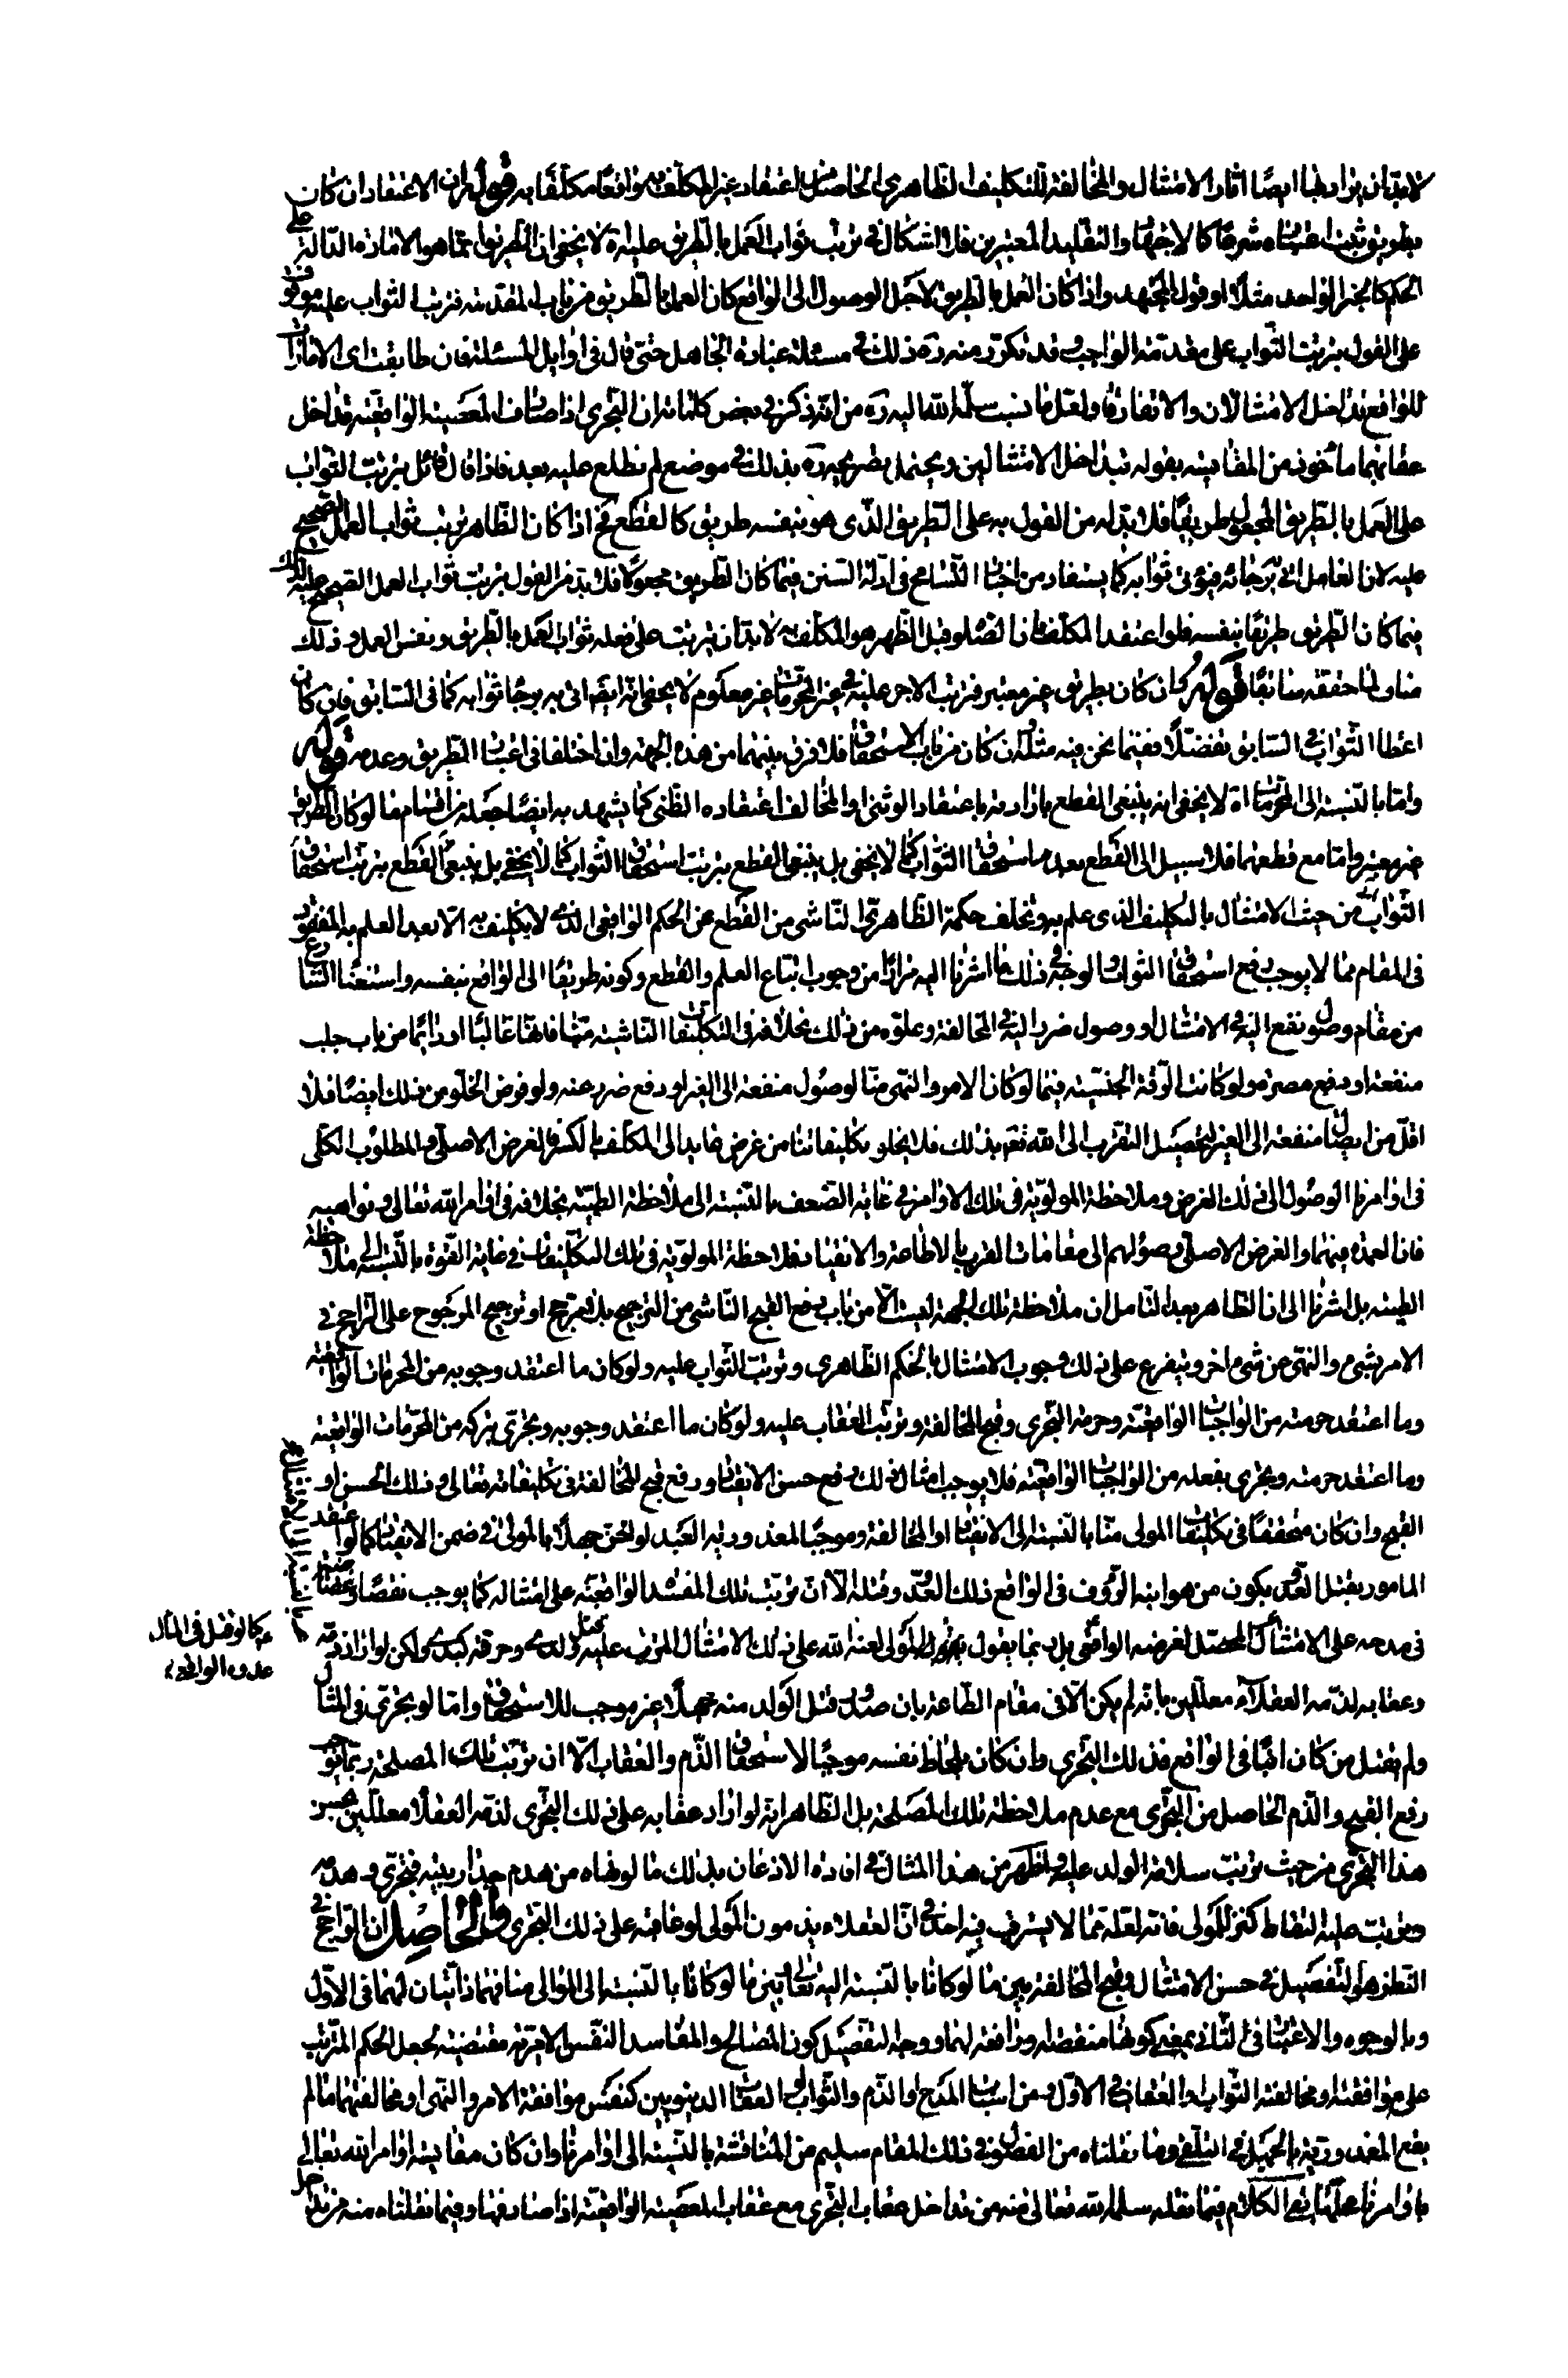 لا بد ان يراد بها ايضا اثار الامتثال والمخالفة للتكليف الظاهري الحاصل من اعتقاد غير المكلف به واقعا مكلفا به قوله ان الاعتقاد ان كان
بطريق ثبت اعتباره شرعا كالاجتهاد والتقليد المعتبرين فلا اشكال في ترتب ثواب العمل بالطريق عليه اه لا يخفى ان الطريق انما هو الامارة الدالة على
الحكم كالخبر الواحد مثلا او قول المجتهد واذا كان العمل بالطريق لاجل الوصول الى الواقع كان العمل بالطريق من باب المقدمة فترتب الثواب عليه موقوف
على القول بترتب الثواب على مقدمة الواجب وقد تكرر منه ره ذلك في مسئلة عبادة الجاهل حتى قال في اوايل المسئلة فان طابقت اى الامارات
للواقع تداخل الامتثالان والا تفارقا ولعل ما نسب سلمه الله اليه ره من انه ذكر في بعض كلماته ان التجري اذا صادف المعصية الواقعية تداخل
عقابهما ماخوذ من المقايسة بقوله بتداخل الامتثالين ويحتمل تصريحه ره بذلك في موضع لم نطلع عليه بعد فاذا قال قائل بترتب الثواب
على العمل بالطريق المجعول طريقا فلا بد له من القول به على الطريق الذى هو بنفسه طريق كالقطع فح اذا كان الظاهر ترتب ثواب العمل الصحيح
عليه لان العامل اتى برجائه فيؤتى ثوابه كما يستفاد من اخبار التسامح في ادلة السنن فيما كان الطريق مجعولا فلا بد من القول بترتب ثواب العمل الصحيح عليه كذلك
فيما كان الطريق طريقا بنفسه فلو اعتقد المكلف ان الصلوة قبل الظهر هو المكلف به لا بد ان يترتب على فعله ثواب العمل بالطريق ونفس العمل وذلك
مناف لما حققه سابقا قوله وان كان بطريق غير معتبر فترتب الاجر عليه في غير المحرمات غير معلوم لا يخفى انه ايضا اتى به برجاء ثوابه كما في السابق فان كان
اعطاء الثواب في السابق تفضلا ففيما نحن فيه مثله وان كان من باب الاستحقاق فلا فرق بينهما من هذه الجهة وان اختلفا في اعتبار الطريق وعدمه قوله
واما بالنسبة الى المحرمات اه لا يخفى انه ينبغى القطع بارادته باعتقاد الوثنى او المخالف اعتقاده الظنى كما يشهد به ايضا جعله من اقسام ما لو كان الطريق
غير معتبر واما مع قطعهما فلا سبيل الى القطع بعدم استحقاق الثواب كما لا يخفى بل ينبغى القطع بترتب استحقاق الثواب كما لا يخفى بل ينبغى القطع بترتب استحقاق
الثواب من حيث الامتثال بالتكليف الذى علم به وتخلف حكمة الظاهرى الناشى من القطع عن الحكم الواقعى الذى لا يكلف به الا بعد العلم به المفقود
في المقام مما لا يوجب رفع استحقاق الثواب والوجه في ذلك ما اشرنا اليه مرارا من وجوب اتباع العلم والقطع وكونه طريقا الى الواقع بنفسه واستغناء الشارع
من مقام وصول نفع اليه في الامتثال او وصول ضرر اليه في المخالفة وعلوه من ذلك بخلافه في التكليفات الناشية منا فانها غالبا او دائما من باب جلب
منفعة او دفع مضرة ولو كانت الرقة الجنسية فيما لو كان الامر والنهى منا لوصول منفعة الى الغير او دفع ضرر عنه ولو فرض الخلو من ذلك ايضا فلا
اقل من ايصالنا منفعة الى الغير لتحصيل التقرب الى الله تعم بذلك فلا يخلو تكليفاتنا من غرض عايد الى المكلف بالكسر فالغرض الاصلى والمطلوب الكلى
فى اوامرنا الوصول الى ذلك الغرض وملاحظة المولوية في تلك الاوامر في غاية الضعف بالنسبة الى ملاحظة الطبية بخلافه في اوامر الله تعالى ونواهيه
فان العمدة فيهما والغرض الاصلى وصولهم الى مقامات القرب بالاطاعة والانقياد فملاحظة المولوية في تلك التكليفات في غاية القوة بالنسبة الى ملاحظة
الطبية بل اشرنا الى ان الظاهر بعد التامل ان ملاحظة تلك الجهة ليست الا من باب دفع القبح الناشى من الترجيح بلا مرجح او ترجيح المرجوح على الراجح في
الامر بشىء والنهى عن شىء اخر ويتفرع على ذلك وجوب الامتثال بالحكم الظاهرى وترتب الثواب عليه ولو كان ما اعتقد وجوبه من المحرمات الواقعية
وما اعتقد حرمته من الواجبات الواقعية وحرمة التجرى وقبح المخالفة وترتب العقاب عليه ولو كان ما اعتقد وجوبه وتجرى بتركه من المحرمات الواقعية
وما اعتقد حرمته وتجرى بفعله من الواجبات الواقعية فلا يوجب امثال ذلك رفع حسن الانقياد ورفع قبح المخالفة في تكليفاته تعالى وذلك الحسن او
القبح وان كان متحققا في تكليفات المولى منا بالنسبة الى الانقياد او المخالفة وموجبا لمعذورية العبد لو تحقق جهلا بالمولى في ضمن الانقياد كما لو اعتقد
المامور بقتل العدو بكون من هو ابنه الرؤف فى الواقع ذلك العدو وقتله الا ان ترتب تلك المفسدة الواقعية على امتثاله كما يوجب نقصا وغضا منه
فى مدحه على الامتثال المحصل لغرضه الواقعى بل ربما يقول المولى لعنة الله على ذلك الامتثال المترتب عليه قتل ولدى وحرقة كبدى ولكن لو اراد ذمه
وعقابه لذمه العقلاء معللين بانه لم يكن الا فى مقام الطاعة بان صدور قتل الولد منه جهلا غير موجب للاستحقاق واما لو تجرى فى المثال
ولم يقتل من كان ابنا فى الواقع فذلك التجرى وان كان بلحاظ نفسه موجبا لاستحقاق الذم والعقاب الا ان ترتب تلك المصلحة ربما يوجب
رفع القبح والذم الحاصل من التجرى مع عدم ملاحظة تلك المصلحة بل الظاهر انه لو اراد عقابه على ذلك التجرى لذمه العقلاء معللين بحسن
هذا التجرى من حيث ترتب سلامة الولد عليه واظهر من هذا المثال في افادة الاذعان بذلك ما لو نهاه من هدم جدار بيته فتجرى وهدمه
وترتب عليه التقاط كنز للمولى فانه لعله مما لا يستريب فيه احد في ان العقلاء يذمون المولى لو عاقبه على ذلك التجرى والحاصل ان الراجح في
النظر هو التفصيل في حسن الامتثال وقبح المخالفة بين ما لو كانا بالنسبة اليه تعالى وبين ما لو كانا بالنسبة الى الموالى منا فهما ذاتيان لهما فى الاول
وبالوجوه والاعتبارات فى الثانى بمعنى كونها منقصة ورافعة لهما ووجه التفصيل كون المصالح والمفاسد النفس الامرية مقتضية لجعل الحكم المترتب
على موافقته ومخالفته الثواب والعقاب في الاول ومن اسباب المدح او الذم والثواب او العقاب الدنيويين كنفس موافقة الامر والنهى او مخالفتهما ما لم
يقع المعذورية بالجهل في الثانى وما نقلناه من الفصول في ذلك المقام سليم من المناقشة بالنسبة الى اوامرنا وان كان مقايسة اوامر الله تعالى
باوامرنا عليها بقى الكلام فيما نقله سلمه الله تعالى عنه من تداخل عقاب التجرى مع عقاب المعصية الواقعية اذا صادفها وفيما نقلناه منه من تداخل
كما لو قتل فى المثال
عدوه الواقعى